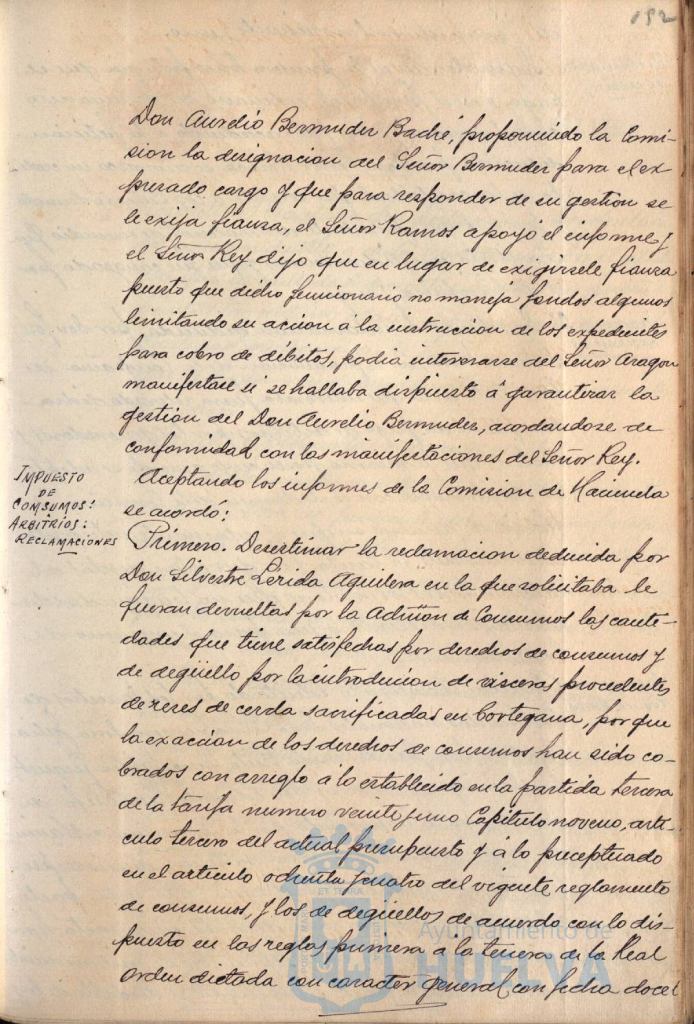 152
Don Aurelio Bermudez Badré, proponiendo la Comi-
sion la designacion del Señor Bermudez para el ex-
presado cargo y que para responder de su gestion se
le exija fianza, el Señor Ramos apoyó el informe y
el Señor Rey dijo que en lugar de exigirsele fianza
puesto que dicho funcionario no maneja fondos algunos
limitando su accion á la instruccion de los expedientes
para cobro de débitos, podia interesarse del Señor Aragon
manifestase si se hallaba dispuesto á garantizar la
gestion del Don Aurelio Bermudez, acordandose de
conformidad con las manifestaciones del Señor Rey.
IMPUESTO
DE
COMSUMOS:
ARBITRIOS:
RECLAMACIONES
Aceptando los informes de la Comision de Hacienda
se acordó:
Primero. Desestimar la reclamacion deducida por
Don Silvestre Lerida Aguilera en la que solicitaba le
fueran devueltas por la Admon de Consumos las canti-
dades que tiene satisfechas por derechos de consumos y
de degüello por la introducion de visceras procedentes
de reses de cerda sacrificadas en Cortegana, por que
la exaccion de los derechos de consumos han sido co-
brados con arreglo á lo establecido en la partida tercera
de la tarifa numero veinte y uno Capitulo noveno, arti-
culo tercero del actual presupuesto y á lo preceptuado
en el articulo ochenta y cuatro del vigente reglamento
de consumos, y los de degüellos de acuerdo con lo dis-
puesto en las reglas primera á la tercera de la Real
Orden dictada con caracter general con fecha doce
Ayuntamiento de
HUELVA